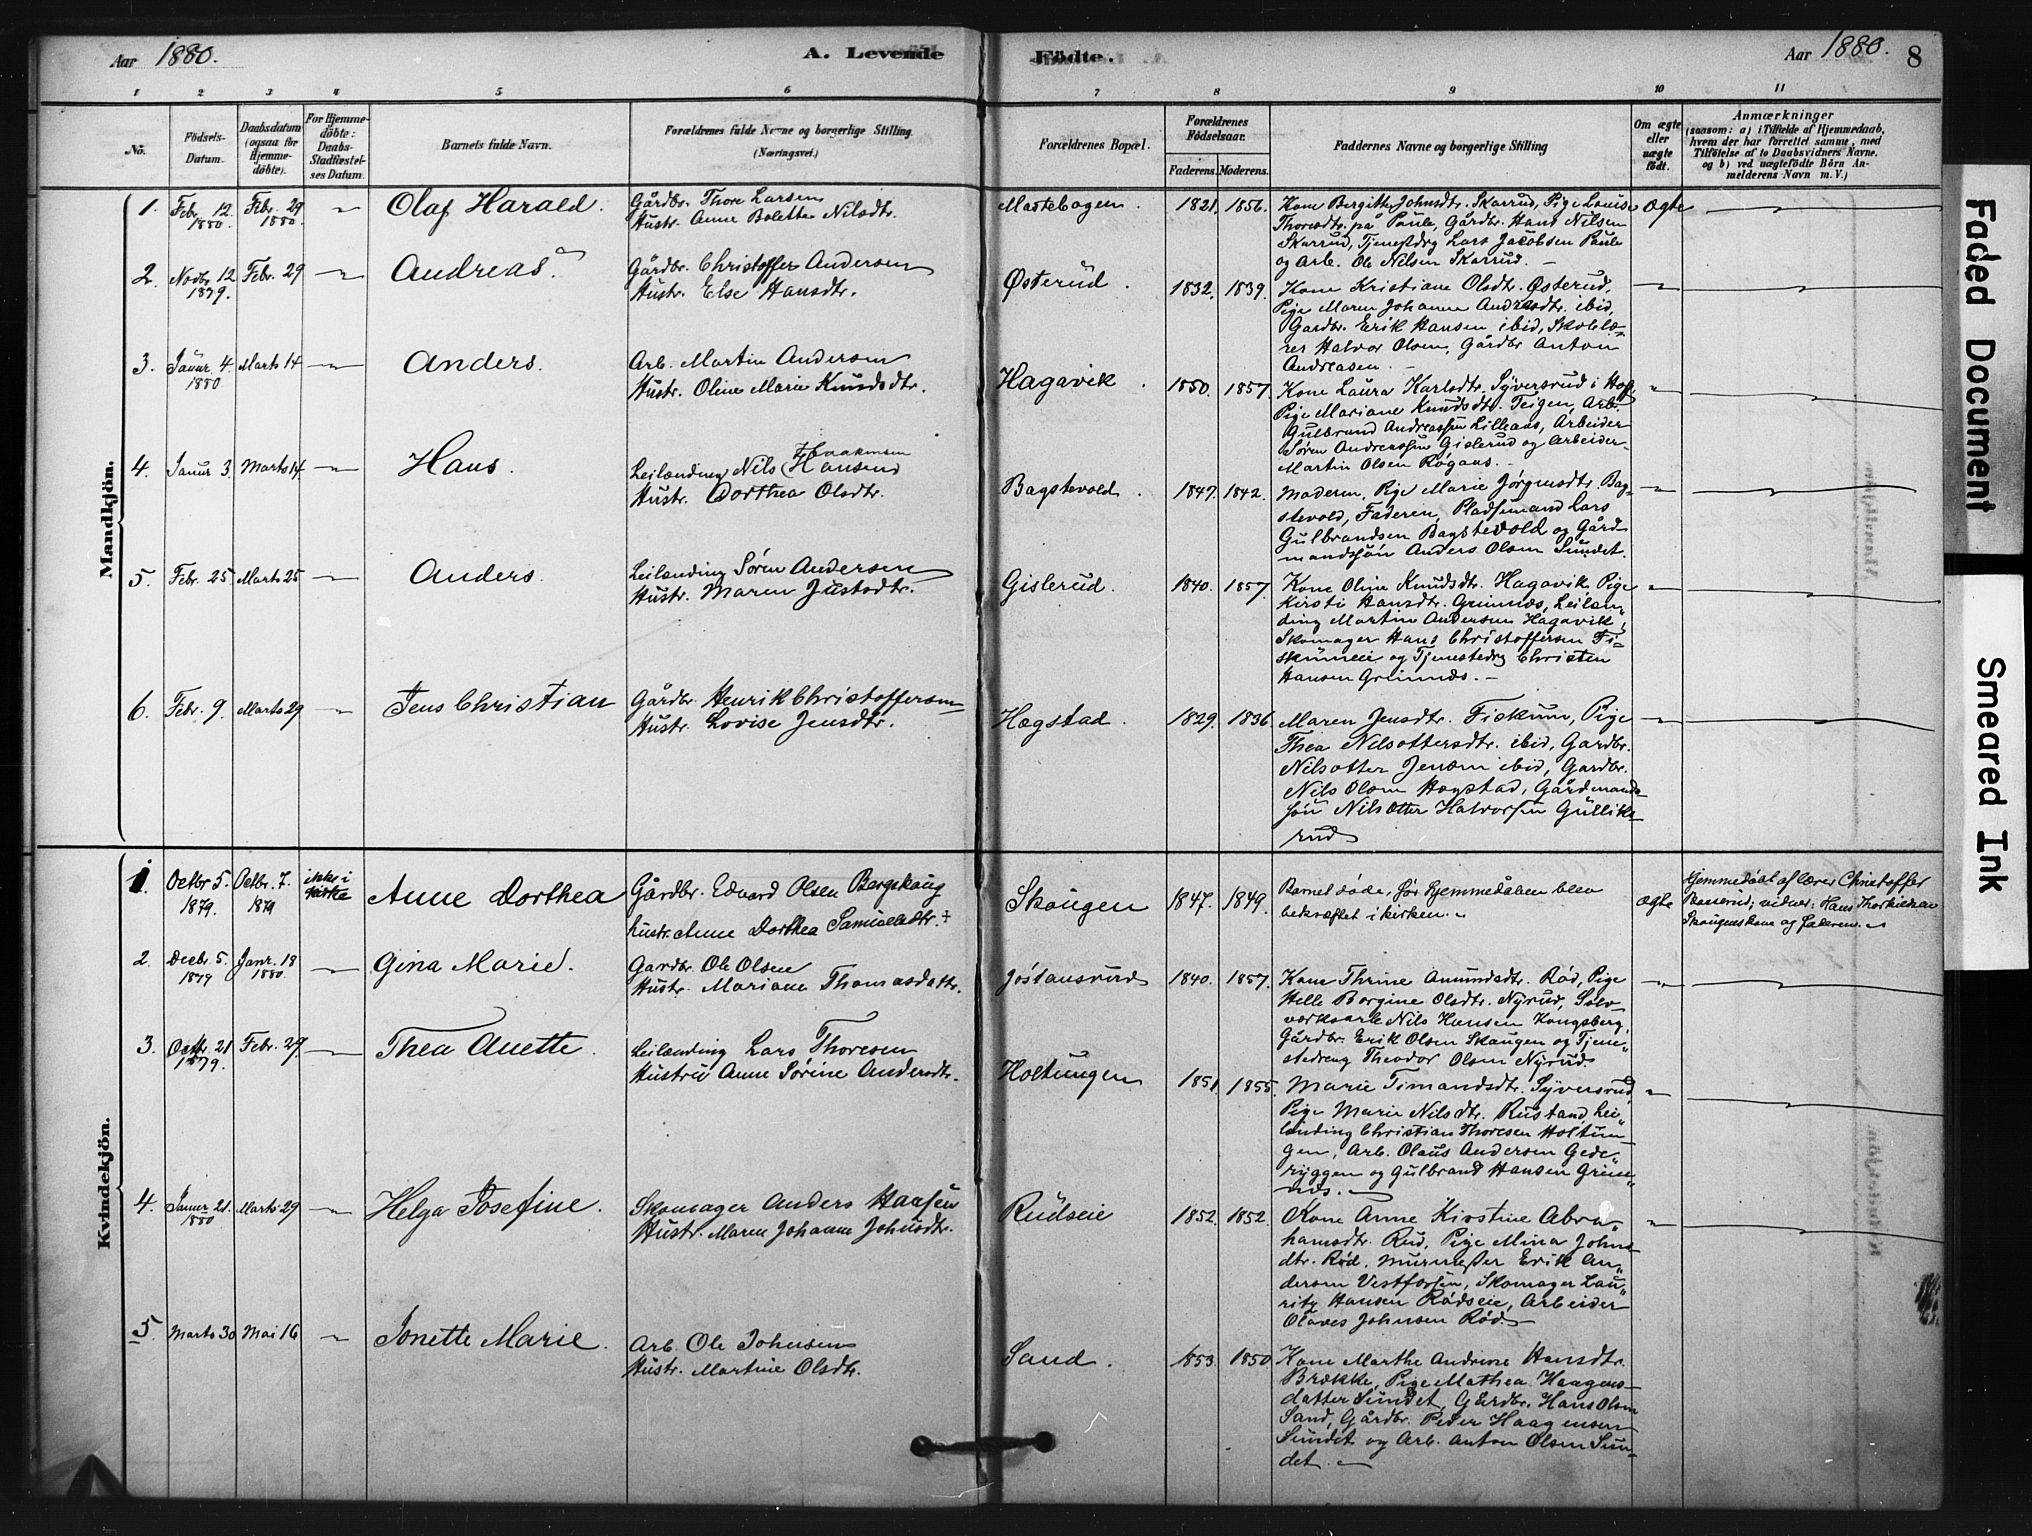 Aar 1880.
A. Levende Födte.
Aar 1880.
8
1 2 3 4 5 6 7 8 9 10 11
No.
Födsels-Datum.
Daabsdatum (ogsaa for Hjemme-döbte).
For Hjemme-döbte: Daabs-Stadfæstel-ses Datum.
Barnets fulde Navn.
Forældrenes fulde Navne og borgerlige Stilling. (Næringsvei.)
Forældrenes Bopæl.
Forældrenes Födselsaar.
Faderens. Moderens.
Faddernes Navne og borgerlige Stilling
Om ægte eller uægte födt.
Anmærkninger
(saasom: a) i Tilfælde af Hjemmedaab,
hvem der har forrettet samme, med
Tilföielse af to Daabsvidners Navne,
og b) ved uægtefödte Börn An-
melderens Navn m. V.)
Mandkjön.
1. Febr. 12 1880. Febr. 29 1880. Olaf Harald.
Gårdbr. Thore Larsen
Hustr. Anne Bolette Nilsdtr.
Mastebogen. 1821. 1856.
Kone Bergitte Johnsdtr. Skarrud, Pige Louise
Thoresdtr. på Paule, Gårdbr. Hans Nilsen
Skarrud, Tjenestdrg Lars Jacobsen Paule
og Arb. Ole Nilsen Skarrud. —
Ægte
2. Novbr. 12 1879. Febr. 29 Andreas.
Gårdbr. Christoffer Andersen
Hustr. Else Hansdtr.
Østerud. 1832. 1839.
Kone Kristiane Olsdtr. Østerud,
Pige Maren Johanne Andreasdtr. ibid,
Gardbr. Erik Hansen ibid, Skolelæ-
rer Halvor Olsen, Gårdbr Anton
Andreasen. —
3. Janur. 4 1880 Marts 14 Anders.
Arb. Martin Andersen
Hustr. Oline Marie Knudsdtr.
Hagavik. 1850. 1857.
Kone Laura Karlsdtr. Syversrud i Hof,
Pige Mariane Knudsdtr. Teigen, Arb.
Gulbrand Andreassen Lilleaas, Arbeider
Søren Andreassen Gislerud og Arbeider
Martin Olsen Røgaas. —
4. Janur 3. Marts 14 Hans.
Haakensen
Leilænding Nils (Hansen)
Hustr. Dorthea Olsdtr.
Bagstevold. 1847. 1842.
Moderen, Pige Marie Jørgensdtr. Bag-
stevold, Faderen, Pladsemand Lars
Gulbrandsen Bagstevold og Gård
mandssøn Anders Olsen Sundet.
5. Febr. 25 Marts 25 Anders.
Leilænding Søren Andersen
Hustr. Maren Justsdtr.
Gislerud. 1840. 1857.
Kone Oline Knudsdtr. Hagavik, Pige
Kirsti Hansdtr. Grimnæs, Leilæn-
ding Martin Andersen Hagavik,
Skomager Hans Christoffersen Fi-
skumeie og Tjenestedrg Christen
Hansen Grimnæs. —
6. Febr. 9. Marts 29 Jens Christian
Gårdbr. Henrik Christoffersen
Hustr. Lovise Jensdtr.
Hægstad. 1829. 1836.
Maren Jensdtr. Fiskum, Pige
Thea Nilsottersdtr. ibid, Gardbr.
Nilsotter Jensen ibid, Gardbr.
Nils Olsen Hægstad, Gårdmands-
søn Nilsotter Halvorsen Gulliks-
rud
Kvindekjön.
1. Octbr 5. 1879. Octbr. 7. 1879 ikke i kirke Anne Dorthea
Gårdbr. Edvard Olsen Bergskaug
hustr. Anne Dorthea Samuelsdtr. +
Skaugen 1847. 1849.
Barnet døde, før hjemmedåben blev
bekræftet i kirken.
Ægte
Hjemmedøbt af lærer Christoffer
Skarrud; vidner: Hans Thorkildsen
Skaugens kone og faderen.
2. Decbr. 5. 1879 Janr. 18 1880. Gina Marie.
Gardbr. Ole Olsen
Hustr. Mariane Thomasdattr.
Jøstansrud 1840. 1857.
Kone Thrine Amundsdtr. Rød, Pige
Helle Borgine Olsdtr. Nyrud, Sølv-
værksarb Nils Hansen Kongsberg,
Gårdbr. Erik Olsen Skaugen og Tjene-
stedreng Theodor Olsen Nyrud.
3. Octbr. 21 1879. Febr. 29 Thea Anette.
Leilænding Lars Thoresen
Hustru Anne Sørine Andersdtr.
Holtungen 1851. 1855.
Marie Timandsdtr. Syversrud,
Pige Marie Nilsdtr. Rustand, Lei-
lænding Christian Thoresen Holtun-
gen, Arb. Olaus Andersen Gede-
ryggen og Gulbrand Hansen Grim-
næs. —
4. Janur 21. 1880 Marts 29 Helga Josefine.
Skomager Anders Hansen
Hustr. Maren Johanne Johnsdtr.
Rudseie 1852. 1852.
Kone Anne Kirstine Abra-
hamsdtr. Rud, Pige Mina Johns
dtr. Rød. Murmester Erik An-
dersen Vestfossen, Skomager Lau-
ritz Hansen Rødseie, Arbeider
Olaves Johnsen Rød.
5. Marts 30 Mai 16 Jonette Marie.
Arb. Ole Johnsen
Hustr. Martine Olsdtr.
Sand. 1853. 1850
Kone Marthe Andrine Hansdtr.
Brække, Pige Mathea Haagens-
datter Sundet, Gårdbr. Hans Olsen
Sand, Gårdbr. Peder Haagensen
Sundet og Arb. Anton Olsen Sun-
det. —
Faded Document
Smeared Ink